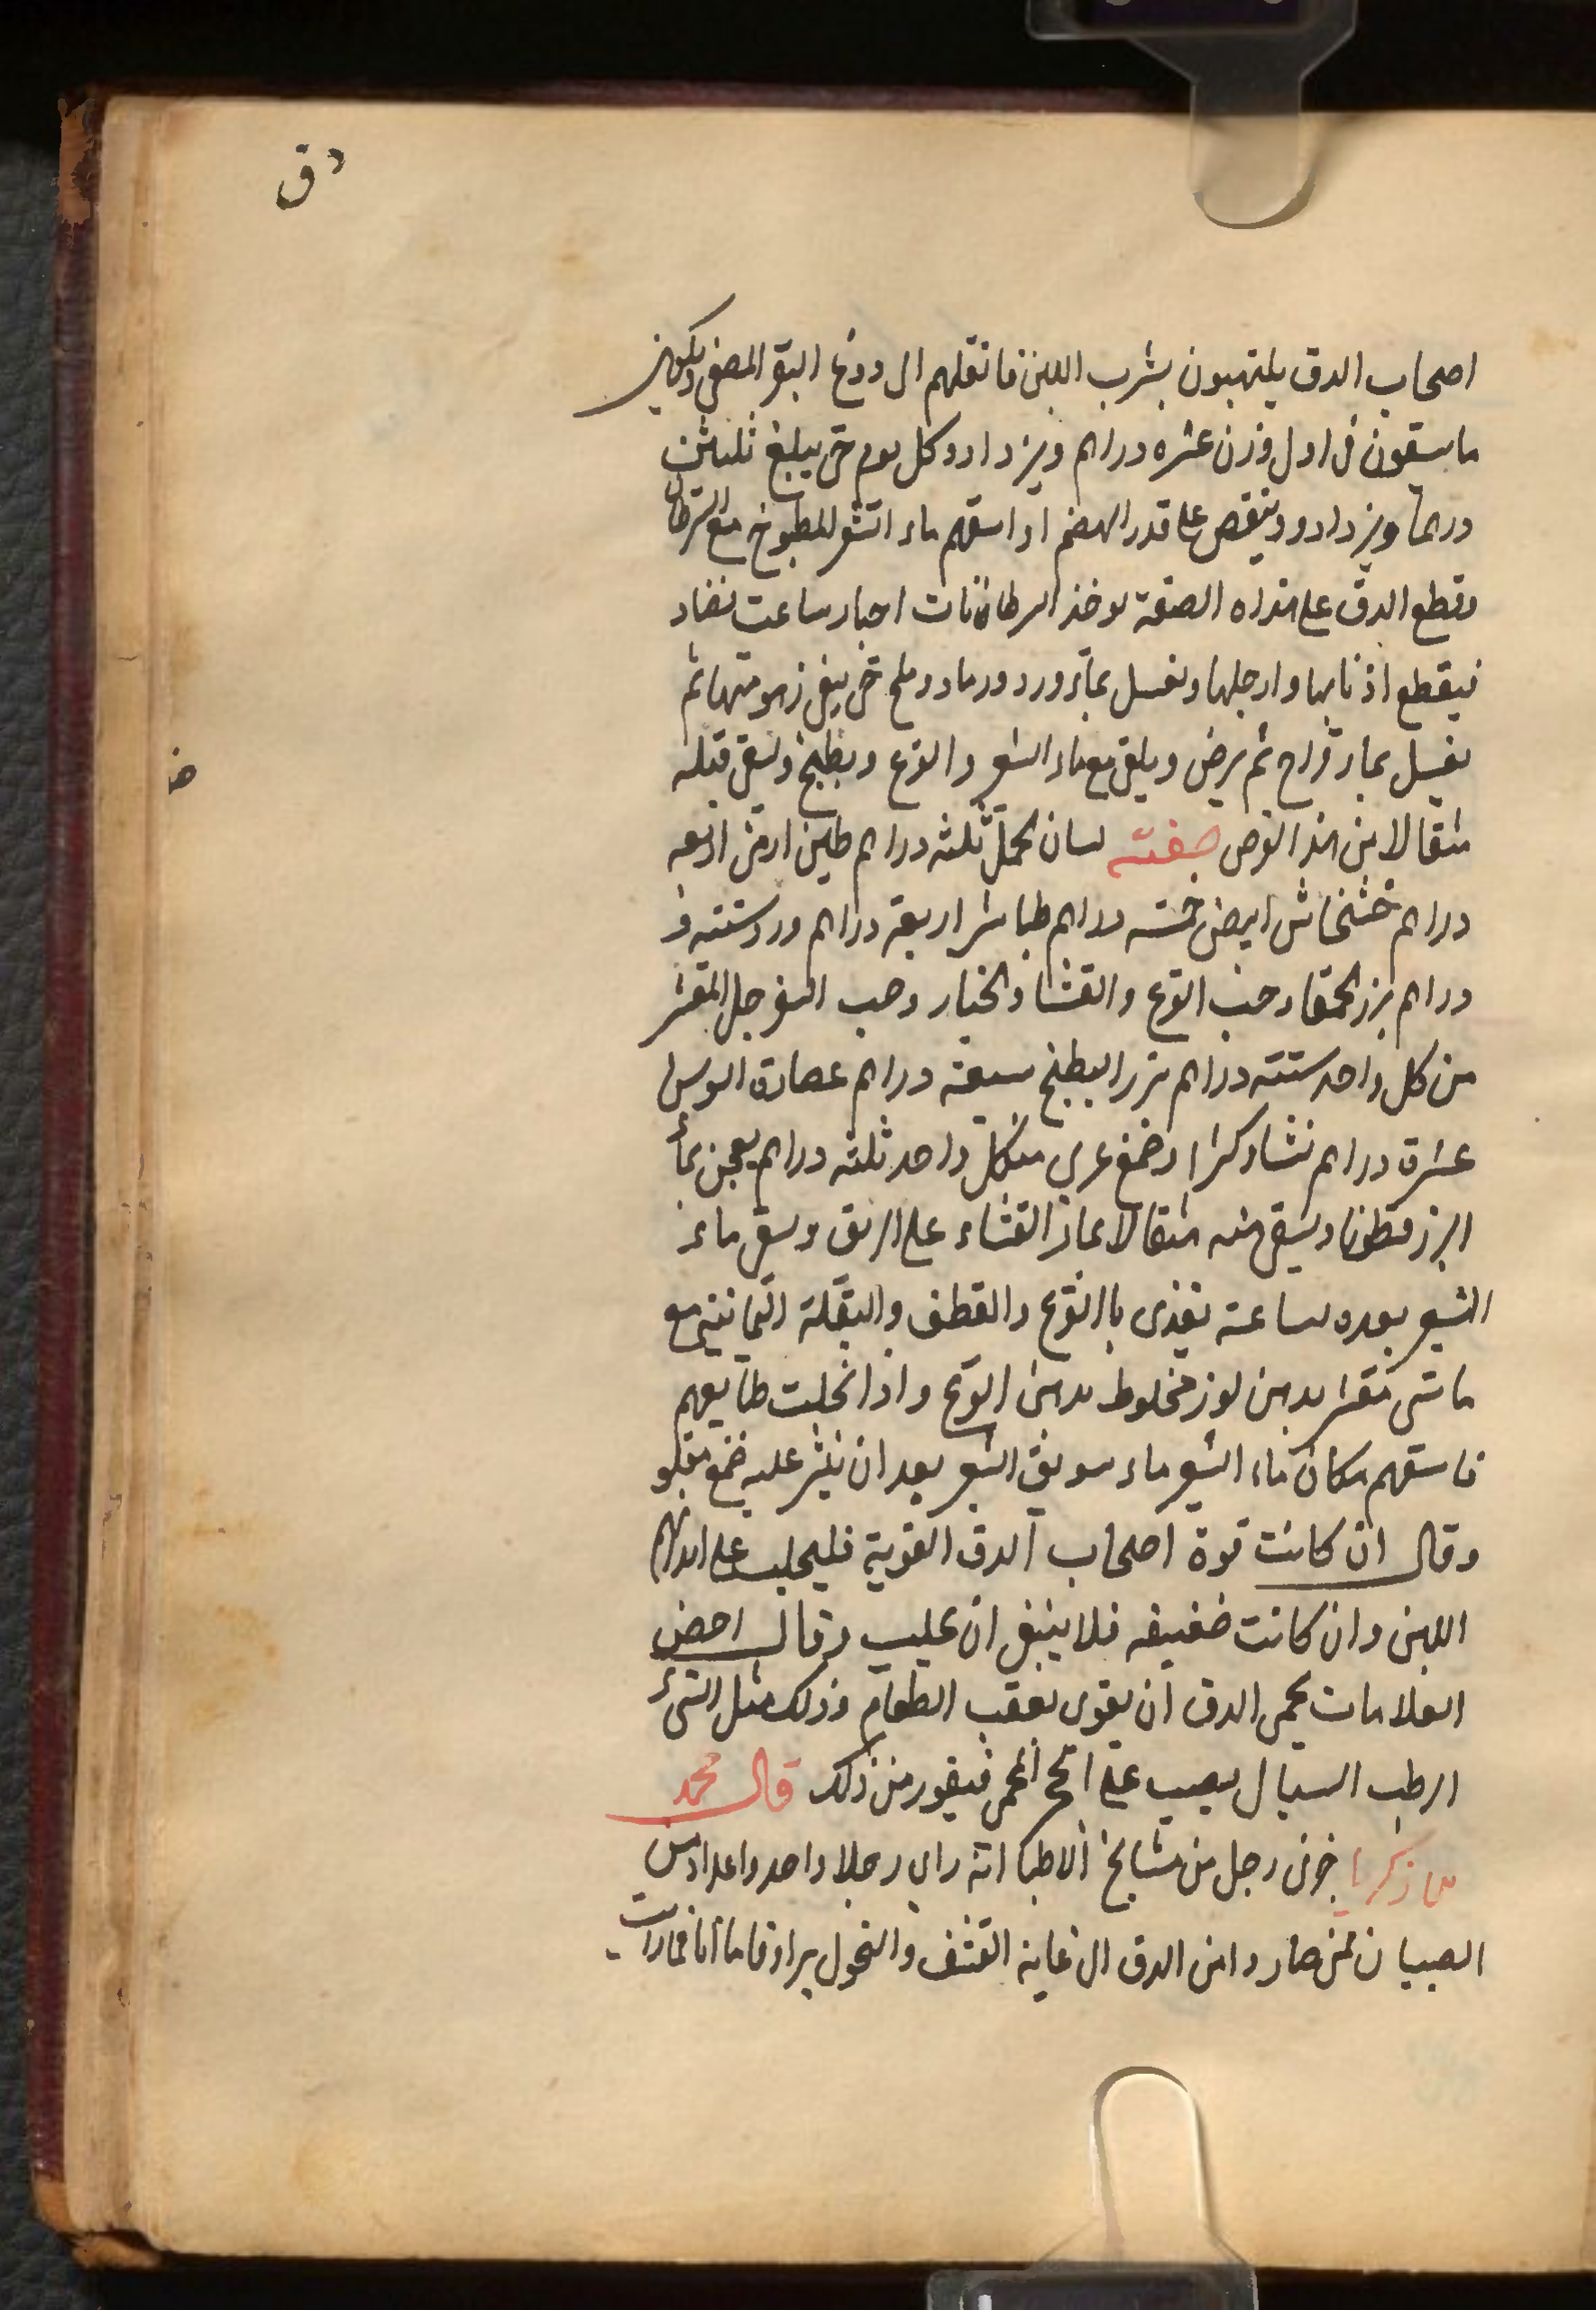 دق
اصحاب الدق يلتهبون بشرب اللبن فانقلهم الى دوغ البقر المصفى وليكون
ما يسقون فى اول وزن عشره دراهم ويزدادو كل يوم حتى يبلغ ثلثين
درهما ويزدادو وينقص على قدر الهضم او اسقهم ماء الشعر المطبوخ مع السرطان
وقطع الدق على هذه الصفة يوخذ السرطانات احيا ساعت تصاد
فيقطع اذنابها وارجلها وتغسل بماء ورد ورماد وملح حتى ينقى زهومتها ثم
يغسل بماء قراح ثم يرض ويلقى مع ماء الشعر والقرع ويطبخ ويسقى قبله
مثقالا من هذا القرص صفته لسان الحمل ثلثه دراهم طين ارمنى اربعه
دراهم خشخاش ابيض خمسه دراهم طباشير اربعة دراهم ورد ستته
دراهم بزر الحمقا وحب القرع والقثا والخيار وحب السفرجل المقشر
من كل واحد ستته دراهم بزر البطيخ سبعة دراهم عصارة السوس
عشرة دراهم نشا وكثيرا وضمغ عربى من كل واحد ثلثه دراهم يعجن بماء
البزر قطونا ويسقى منه مثقالا بماء القثاء على الريق ويسقى ماء
الشعير بعده بساعة يغذى بالقرع والقطف والبقلة اليمانيه مع
ماش مقشر بدهن لوز مخلوط بدهن القرع واذا انحلت طبايعهم
فاسقهم مكان ماء الشعير ماء سويق الشعير بعد ان ينثر عليه ضمغ مقلو
وقال ان كانت قوة اصحاب الدق القوية فليحلب على ابدانهم
اللبن وان كانت ضعيفه فلا ينبغى ان يحلب وقال اخص
العلامات بحمى الدق ان يقوى بعقب الطعام وذلك مثل الشىء
الرطب السيال يصيب على المحمى فيفور من ذلك قال محمد
بن زكريا خبرنى رجل من مشايخ الاطبا انه راى رجلا واحد واعداد من
الصبيان ممن صار وامن الدق الى غاية القشف والنحول براوقاما انا فما رايت